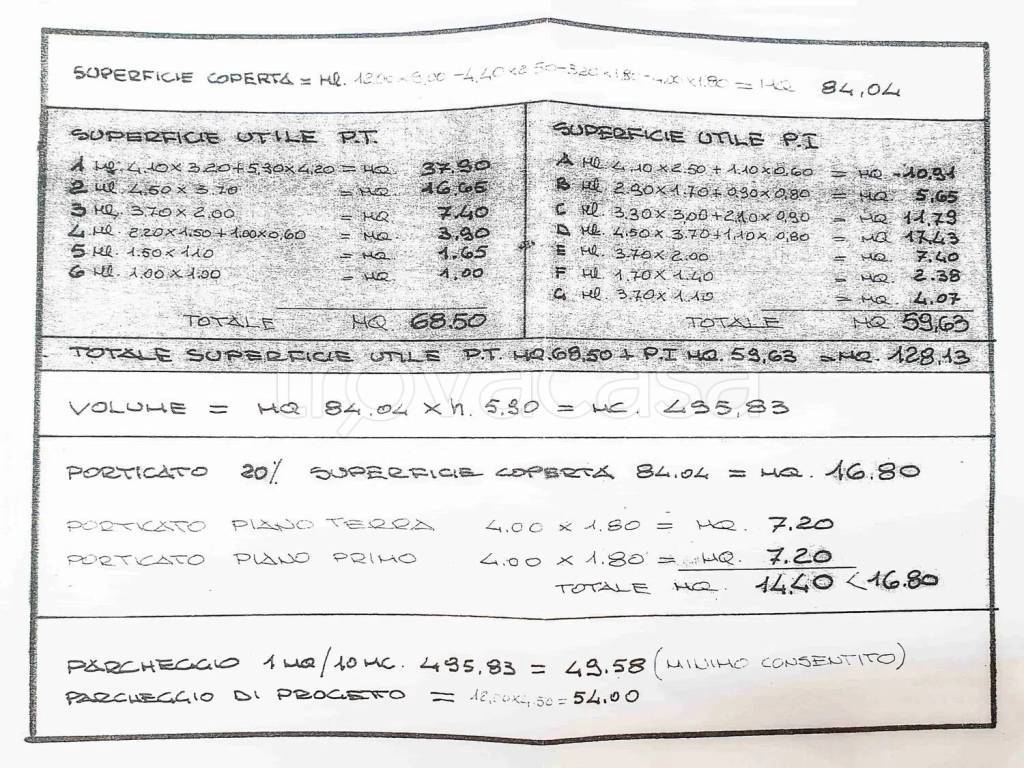 SUPERFICIE COPERTA = Ml. 12.00×9.00 -4,40×2.50-3.20×1.80-4.00×1.80 = MQ 84,04
SUPERFICIE UTILE P.T.
1 Ml. 4.10×3.20+5.90×4.20 = MQ. 37.90
2 Ml. 4.50×3.70 = MQ. 16.65
3 Ml. 3.70×2.00 = MQ. 7.40
4 Ml. 2.20×1.50+1.00×0,60 = MQ. 3.90
5 Ml. 1.50×1.10 = MQ. 1.65
6 Ml. 1.00×1.00 = MQ. 1.00
TOTALE MQ 68.50
SUPERFICIE UTILE P.I
A Ml. 4.10×2.50+1.10×0,60 = MQ 10,91
B Ml. 2.90×1.70+0.90×0,80 = MQ. 5,65
C Ml. 3.30×3,00+2.10×0,90 = MQ 11,79
D Ml. 4.50×3.70+1.10×0,80 = MQ 17,43
E Ml. 3.70×2.00 = MQ. 7.40
F Ml. 1.70×1.40 = MQ. 2.38
G Ml. 3.70×1.10 = MQ. 4.07
TOTALE MQ 59,63
TOTALE SUPERFICIE UTILE P.T. MQ.68,50 + P.I MQ. 59,63 = MQ. 128,13
trovacasa
VOLUME = MQ 84.04 × h. 5.90 = MC. 495,83
PORTICATO 20% SUPERFICIE COPERTA 84.04 = MQ. 16.80
PORTICATO PIANO TERRA 4.00 × 1.80 = MQ. 7.20
PORTICATO PIANO PRIMO 4.00 × 1.80 = MQ. 7.20
TOTALE MQ. 14.40 < 16.80
PARCHEGGIO 1 MQ/10 MC. 495,83 = 49.58 (MINIMO CONSENTITO)
PARCHEGGIO DI PROGETTO = 12,00×4,50 = 54.00